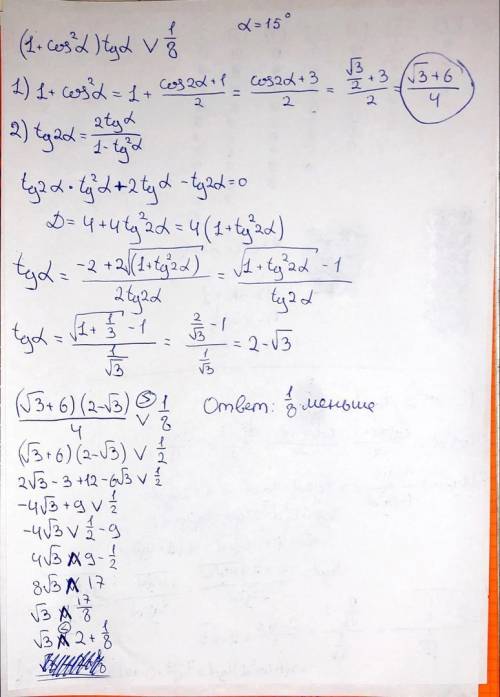 (1+cos²α)tgα ∨ 1/8
α=15°
1) 1+cos²α = 1 + (cos2α+1)/2 = (cos2α+3)/2 = (√3/2 + 3)/2 = (√3+6)/4
2) tg2α = 2tgα/(1-tg²α)
tg2α · tg²α + 2tgα - tg2α = 0
D = 4+4tg²2α = 4(1+tg²2α)
tgα = (-2+2√(1+tg²2α))/(2tg2α) = (√(1+tg²2α) - 1)/(tg2α)
tgα = (√(1+1/3) - 1)/(1/√3) = (2/√3 - 1)/(1/√3) = 2-√3
(√3+6)(2-√3)/4 > ∨ 1/8
Ответ: 1/8 меньше
(√3+6)(2-√3) ∨ 1/2
2√3 - 3+12-6√3 ∨ 1/2
-4√3+9 ∨ 1/2
-4√3 ∨ 1/2 - 9
4√3 ∧ 9 - 1/2
8√3 ∧ 17
√3 ∧ 17/8
√3 < ∧ 2+1/8